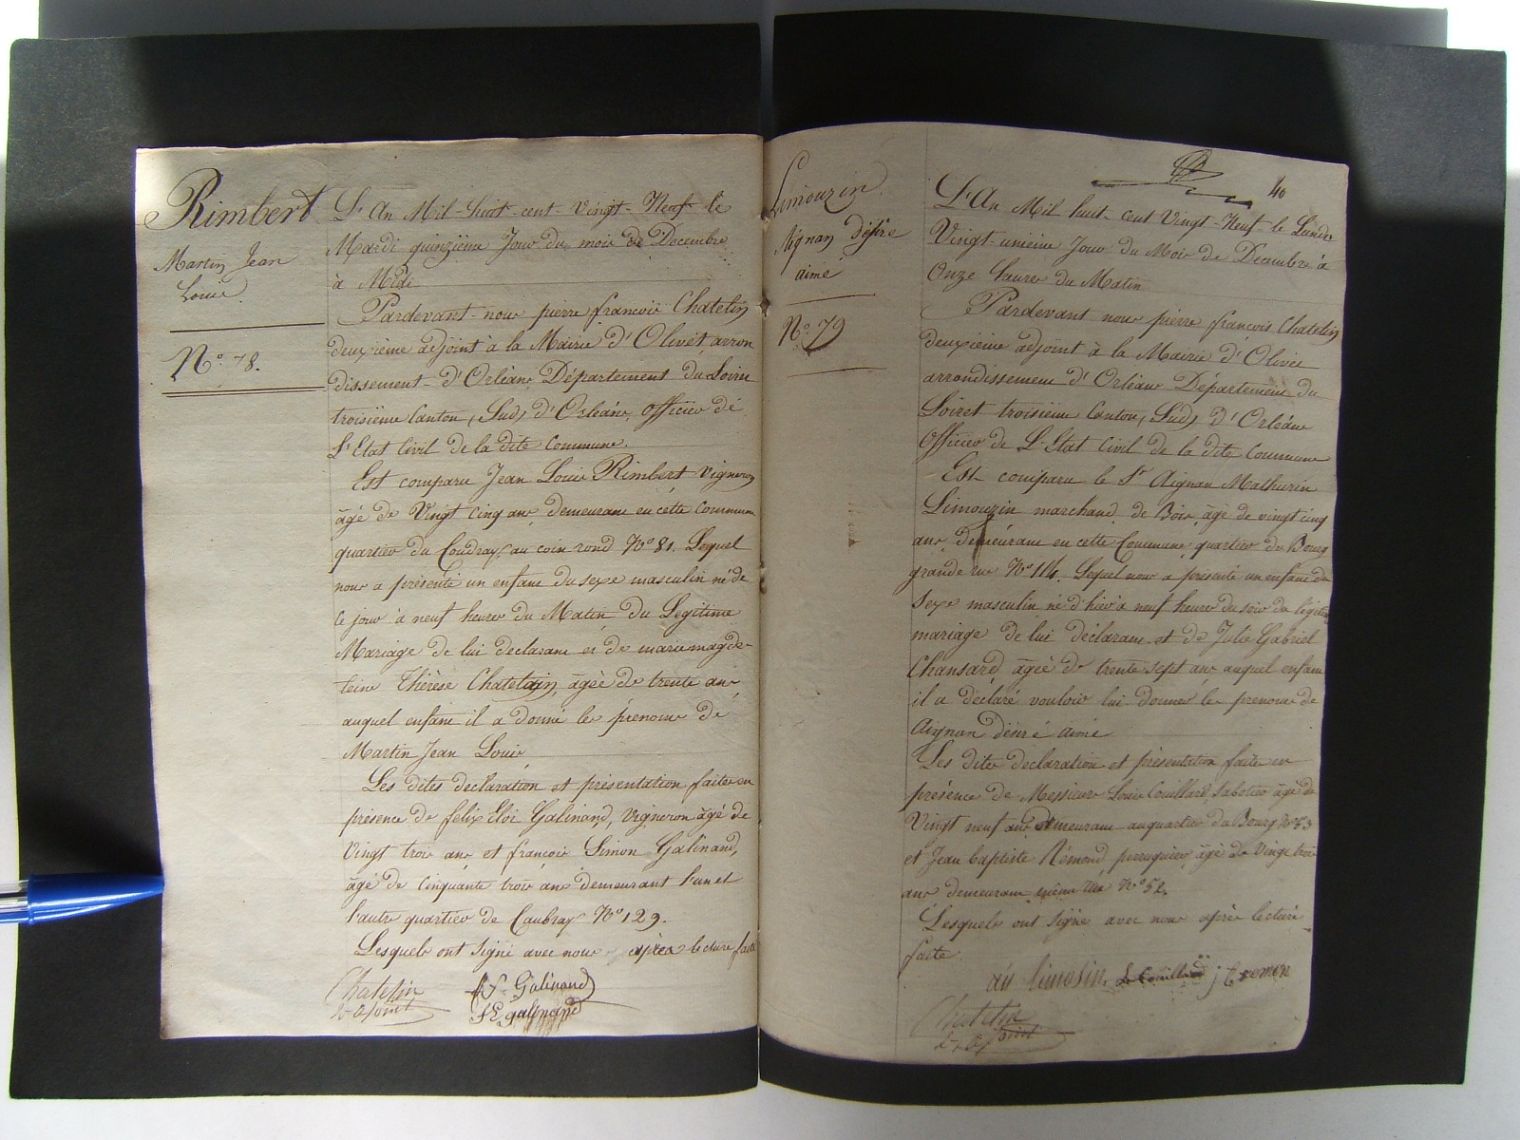 Rimbert
Martin Jean
Louis.
N° 78.
L'An Mil-huit-cent-Vingt-Neuf le
Mardi quinzième Jour du mois de Décembre
à Midi
Pardevant-nous pierre françois Chatelin
deuxième adjoint à la Mairie d'Olivet, arron
dissement-d'Orléans Département du Loiret
troisième Canton, (Sud) d'Orléans, officier de
L'Etat Civil de la dite Commune.
Est comparu Jean Louis Rimbert Vigneron
âgé de Vingt cinq ans, demeurant en cette Commune
quartier du Coudray, au coin rond N° 81. Lequel
nous a présenté un enfant du sexe masculin né de
ce jour à neuf heures du Matin du Légitime
Mariage de lui déclarant et de marie magde-
leine Thérèse Chatelain, âgée de trente ans,
auquel enfant il a donné les prénoms de
Martin Jean Louis
Les dites déclaration et présentation faites en
présence de felix Eloi Galinand, Vigneron âgé de
Vingt trois ans et françois Simon Galinand,
âgé de Cinquante trois ans demeurant l'un et
l'autre quartier de Caubray N° 129.
Lesquels ont signé avec nous après lecture faite
Chatelin
2e adjoint
f.S. Galinand
f E galinand
40
Limouzin
Aignan désiré
aimé
N° 79
L'An Mil huit-cent Vingt-Neuf le Lundi
Vingt-unième Jour du Mois de Décembre à
Onze heures du Matin
Pardevant nous pierre françois Chatelin
deuxième adjoint à la Mairie d'Olivet
arrondissement d'Orléans Département du
Loiret troisième Canton, (Sud) d'Orléans
Officier de L'Etat Civil de la dite Commune
Est comparu le Sr Aignan Mathurin
Limouzin marchand de Bois, âgé de vingt cinq
ans, demeurant en cette Commune, quartier du Bourg
grande rue N° 114. Lequel nous a présenté un enfant du
Sexe masculin né d'hier à neuf heures du soir du légitime
mariage de lui déclarant et de Julie Gabriel
Chansard, âgée de trente-sept ans auquel enfant
il a déclaré vouloir lui donner les prénoms de
Aignan désiré aimé
Les dites déclaration et présentation faite en
présence de Messieurs Louis Couillard Sabotier âgé de
Vingt neuf ans demeurant au quartier du Bourg N° 53
et Jean baptiste Rémond perruquier, âgé de Vingt trois
ans demeurant même rue N° 52.
Lesquels ont signé avec nous après lecture
faite.
ais limosin L Couillard j B remon
Chatelin
2e adjoint